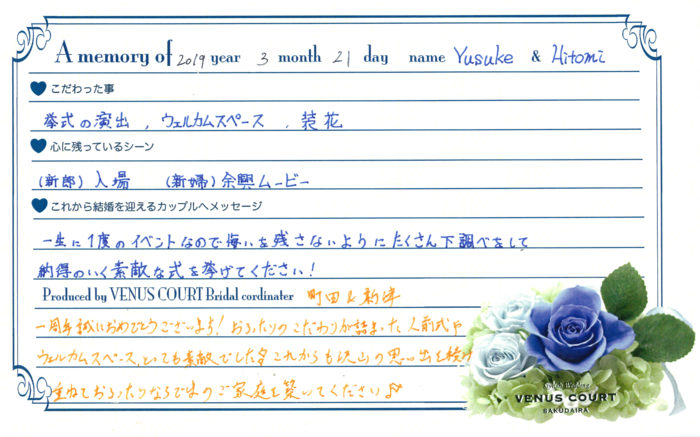 A memory of 2019 year 3 month 21 day name Yusuke & Hitomi
こだわった事
挙式の演出、ウェルカムスペース、装花
心に残っているシーン
(新郎)入場 (新婦)余興ムービー
これから結婚を迎えるカップルへメッセージ
一生に1度のイベントなので悔いを残さないようにたくさん下調べをして
納得のいく素敵な式を挙げてください!
Produced by VENUS COURT Bridal cordinater 町田 &
一周年誠におめでとうございます! おふたりのこだわりが詰まった人前式や
ウェルカムスペース、とっても素敵でした これからも沢山の思い出を
重ねておふたりならではのご家庭を築いてください
VENUS COURT
SAKUDAIRA